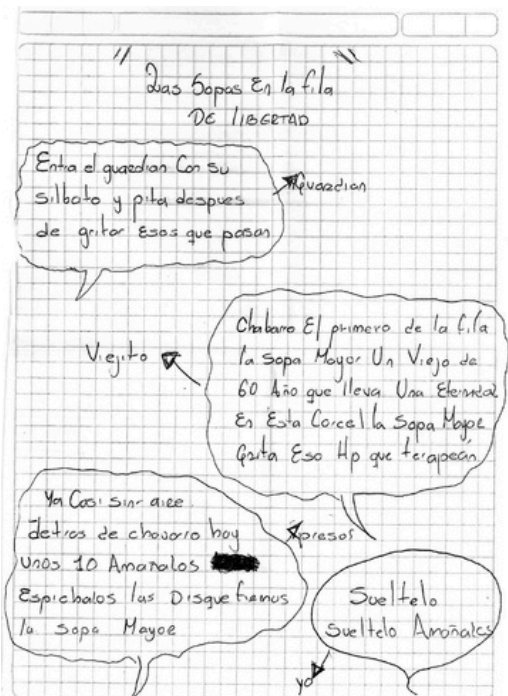 Las Sopas En la fila
DE LIBERTAD
Entra el guardian Con su
silbato y pita despues
de gritar Esos que pasan
Guardian
Chabarro El primero de la fila
la sopa Mayor Un Viejo de
60 Año que lleva Una Eternidad
En Esta Carcel la Sopa Mayor
Grita Eso Hp que terapean
Viejito
Ya Casi sin aire
detras de chavarro hay
unos 10 Amañalos
Espichalos las Disque fiamos
la sopa Mayor
presos
Sueltelo
Sueltelo Amañales
yo